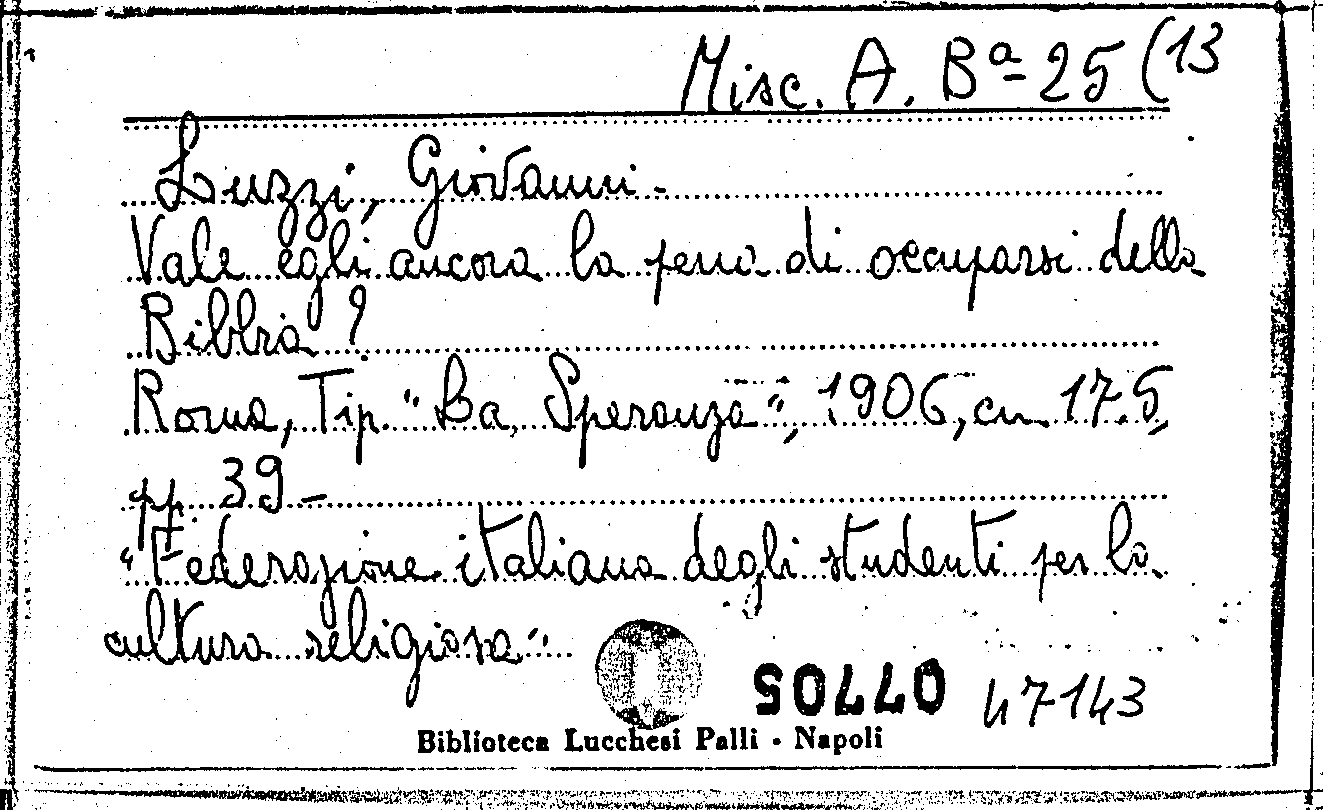 Misc. A. Bª 25 (13
Luzzi, Giovanni.
Vale egli ancora la pena di occuparsi della
Bibbia?
Roma, Tip. "La Speranza", 1906, cm. 17.5,
pp. 39.-
"Federazione italiana degli studenti per la
cultura religiosa".
50770 47143
Biblioteca Lucchesi Palli - Napoli